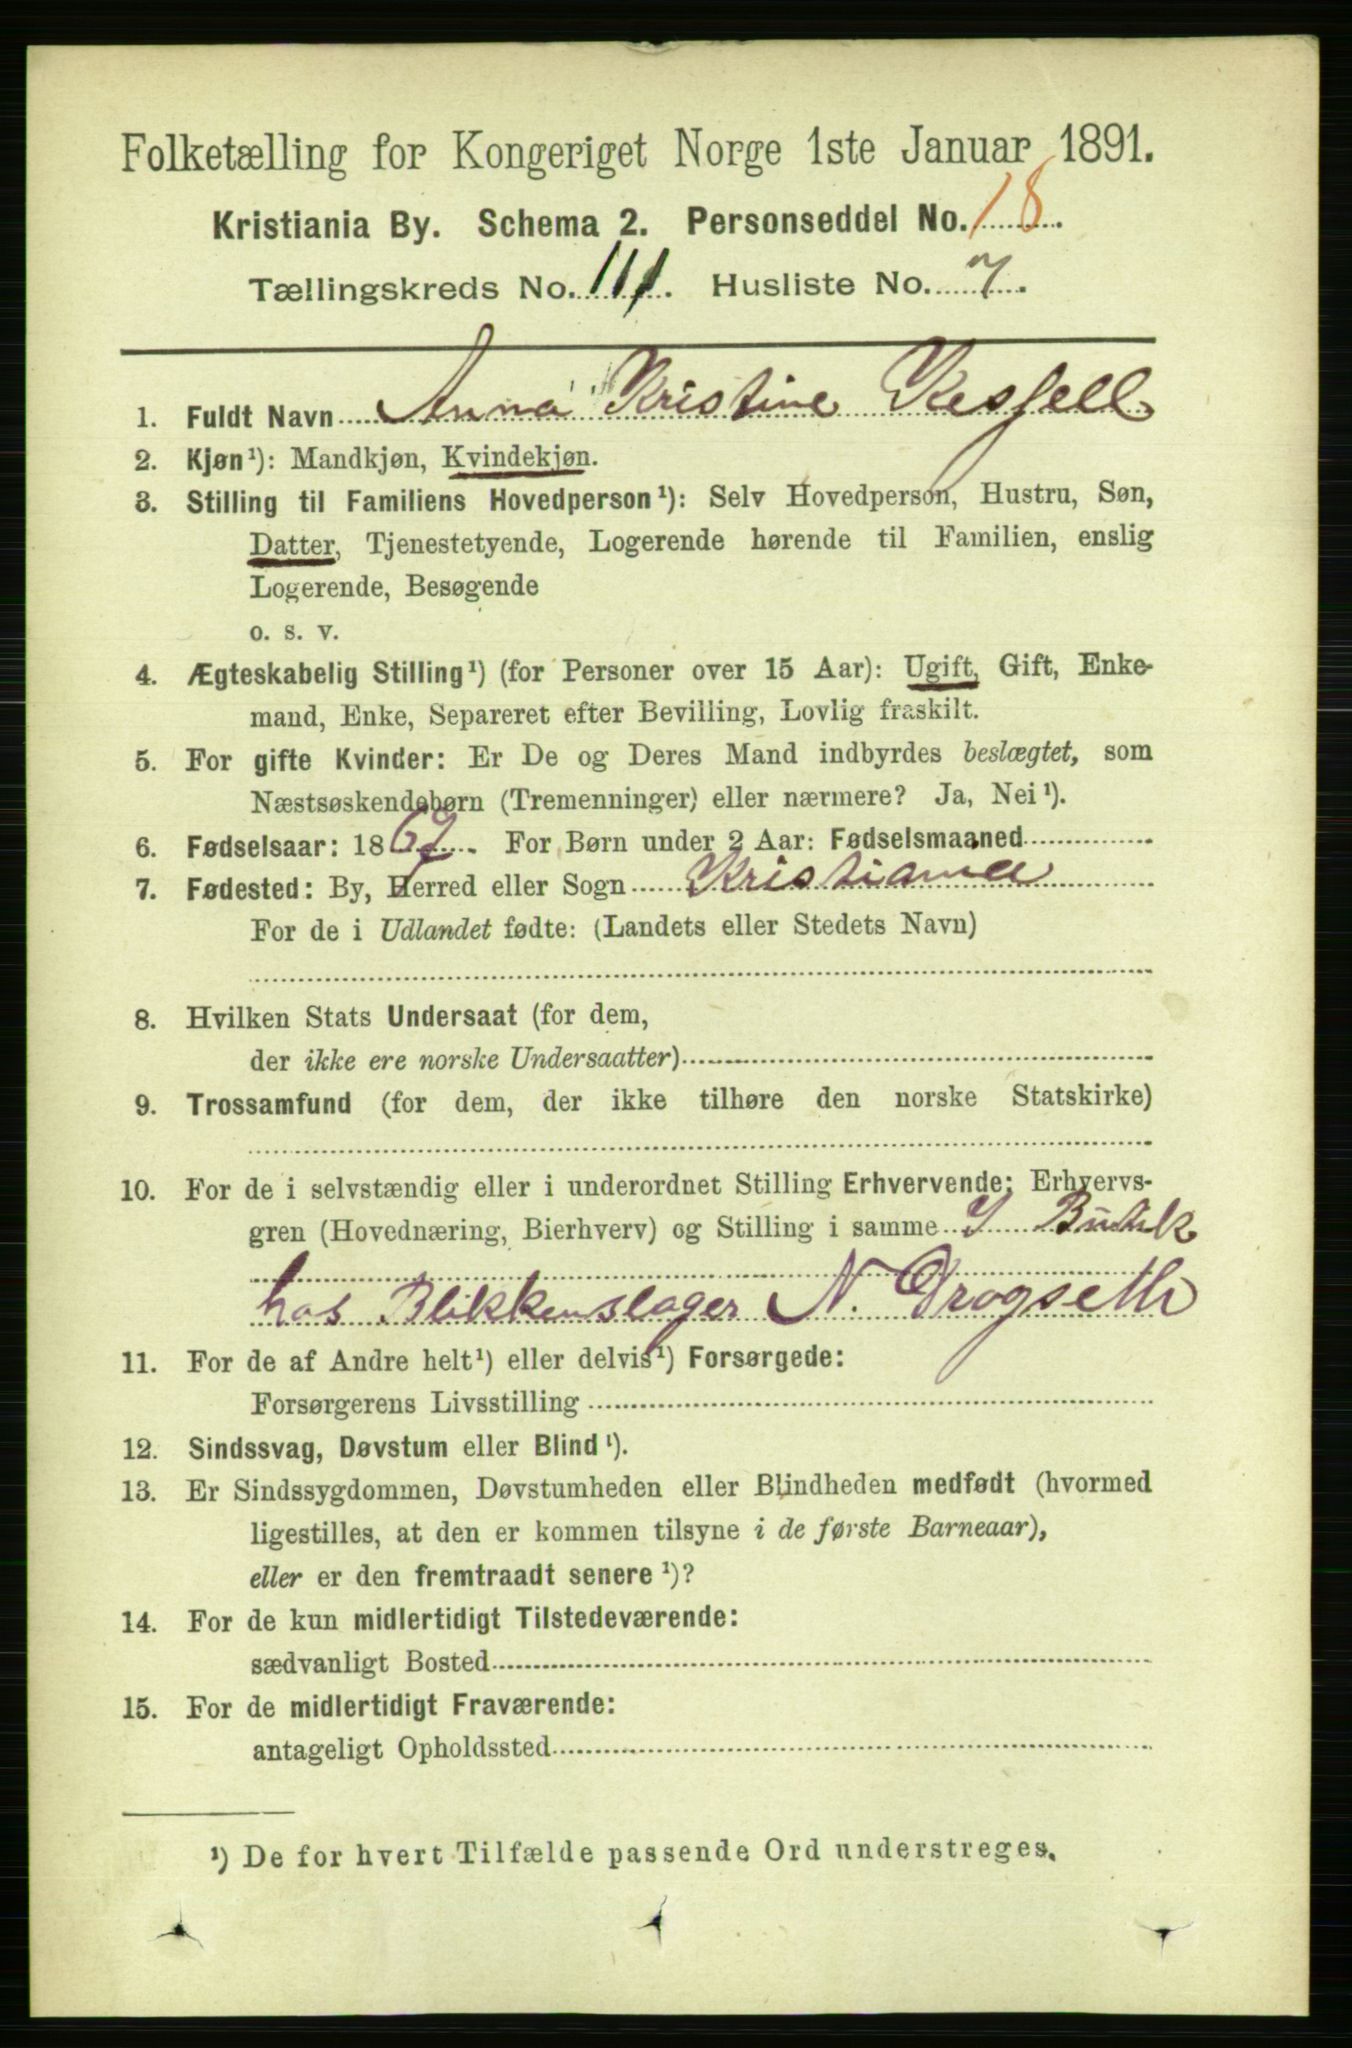 Folketælling for Kongeriget Norge 1ste Januar 1891.
Kristiania By. Schema 2. Personseddel No. 18.
Tællingskreds No. 111. Husliste No. 7.
1. Fuldt Navn Anna Kristine Kesfell
2. Kjøn¹): Mandkjøn, Kvindekjøn.
3. Stilling til Familiens Hovedperson¹): Selv Hovedperson, Hustru, Søn,
Datter, Tjenestetyende, Logerende hørende til Familien, enslig
Logerende, Besøgende
o. s. v.
4. Ægteskabelig Stilling¹) (for Personer over 15 Aar): Ugift, Gift, Enke-
mand, Enke, Separeret efter Bevilling, Lovlig fraskilt.
5. For gifte Kvinder: Er De og Deres Mand indbyrdes beslægtet, som
Næstsøskendebørn (Tremenninger) eller nærmere? Ja, Nei¹).
6. Fødselsaar: 1867. For Børn under 2 Aar: Fødselsmaaned
7. Fødested: By, Herred eller Sogn Kristiania
For de i Udlandet fødte: (Landets eller Stedets Navn)
8. Hvilken Stats Undersaat (for dem,
der ikke ere norske Undersaatter)
9. Trossamfund (for dem, der ikke tilhøre den norske Statskirke)
10. For de i selvstændig eller i underordnet Stilling Erhvervende: Erhvervs-
gren (Hovednæring, Bierhverv) og Stilling i samme I Butik
hos Blikkenslager N. Drogseth
11. For de af Andre helt¹) eller delvis¹) Forsørgede:
Forsørgerens Livsstilling
12. Sindssvag, Døvstum eller Blind¹).
13. Er Sindssygdommen, Døvstumheden eller Blindheden medfødt (hvormed
ligestilles, at den er kommen tilsyne i de første Barneaar),
eller er den fremtraadt senere¹)?
14. For de kun midlertidigt Tilstedeværende:
sædvanligt Bosted
15. For de midlertidigt Fraværende:
antageligt Opholdssted
¹) De for hvert Tilfælde passende Ord understreges.